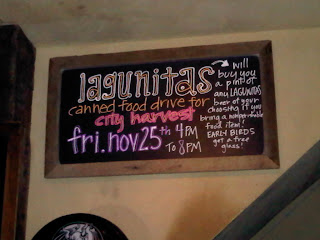 lagunitas
canned food drive for
city harvest
fri. nov 25th 4PM
TO 8PM
will
buy you
a pint of
any LAGUNITAS
beer of your
choosing if you
bring a nonperishable
food item!
EARLY BIRDS
get a free
glass!